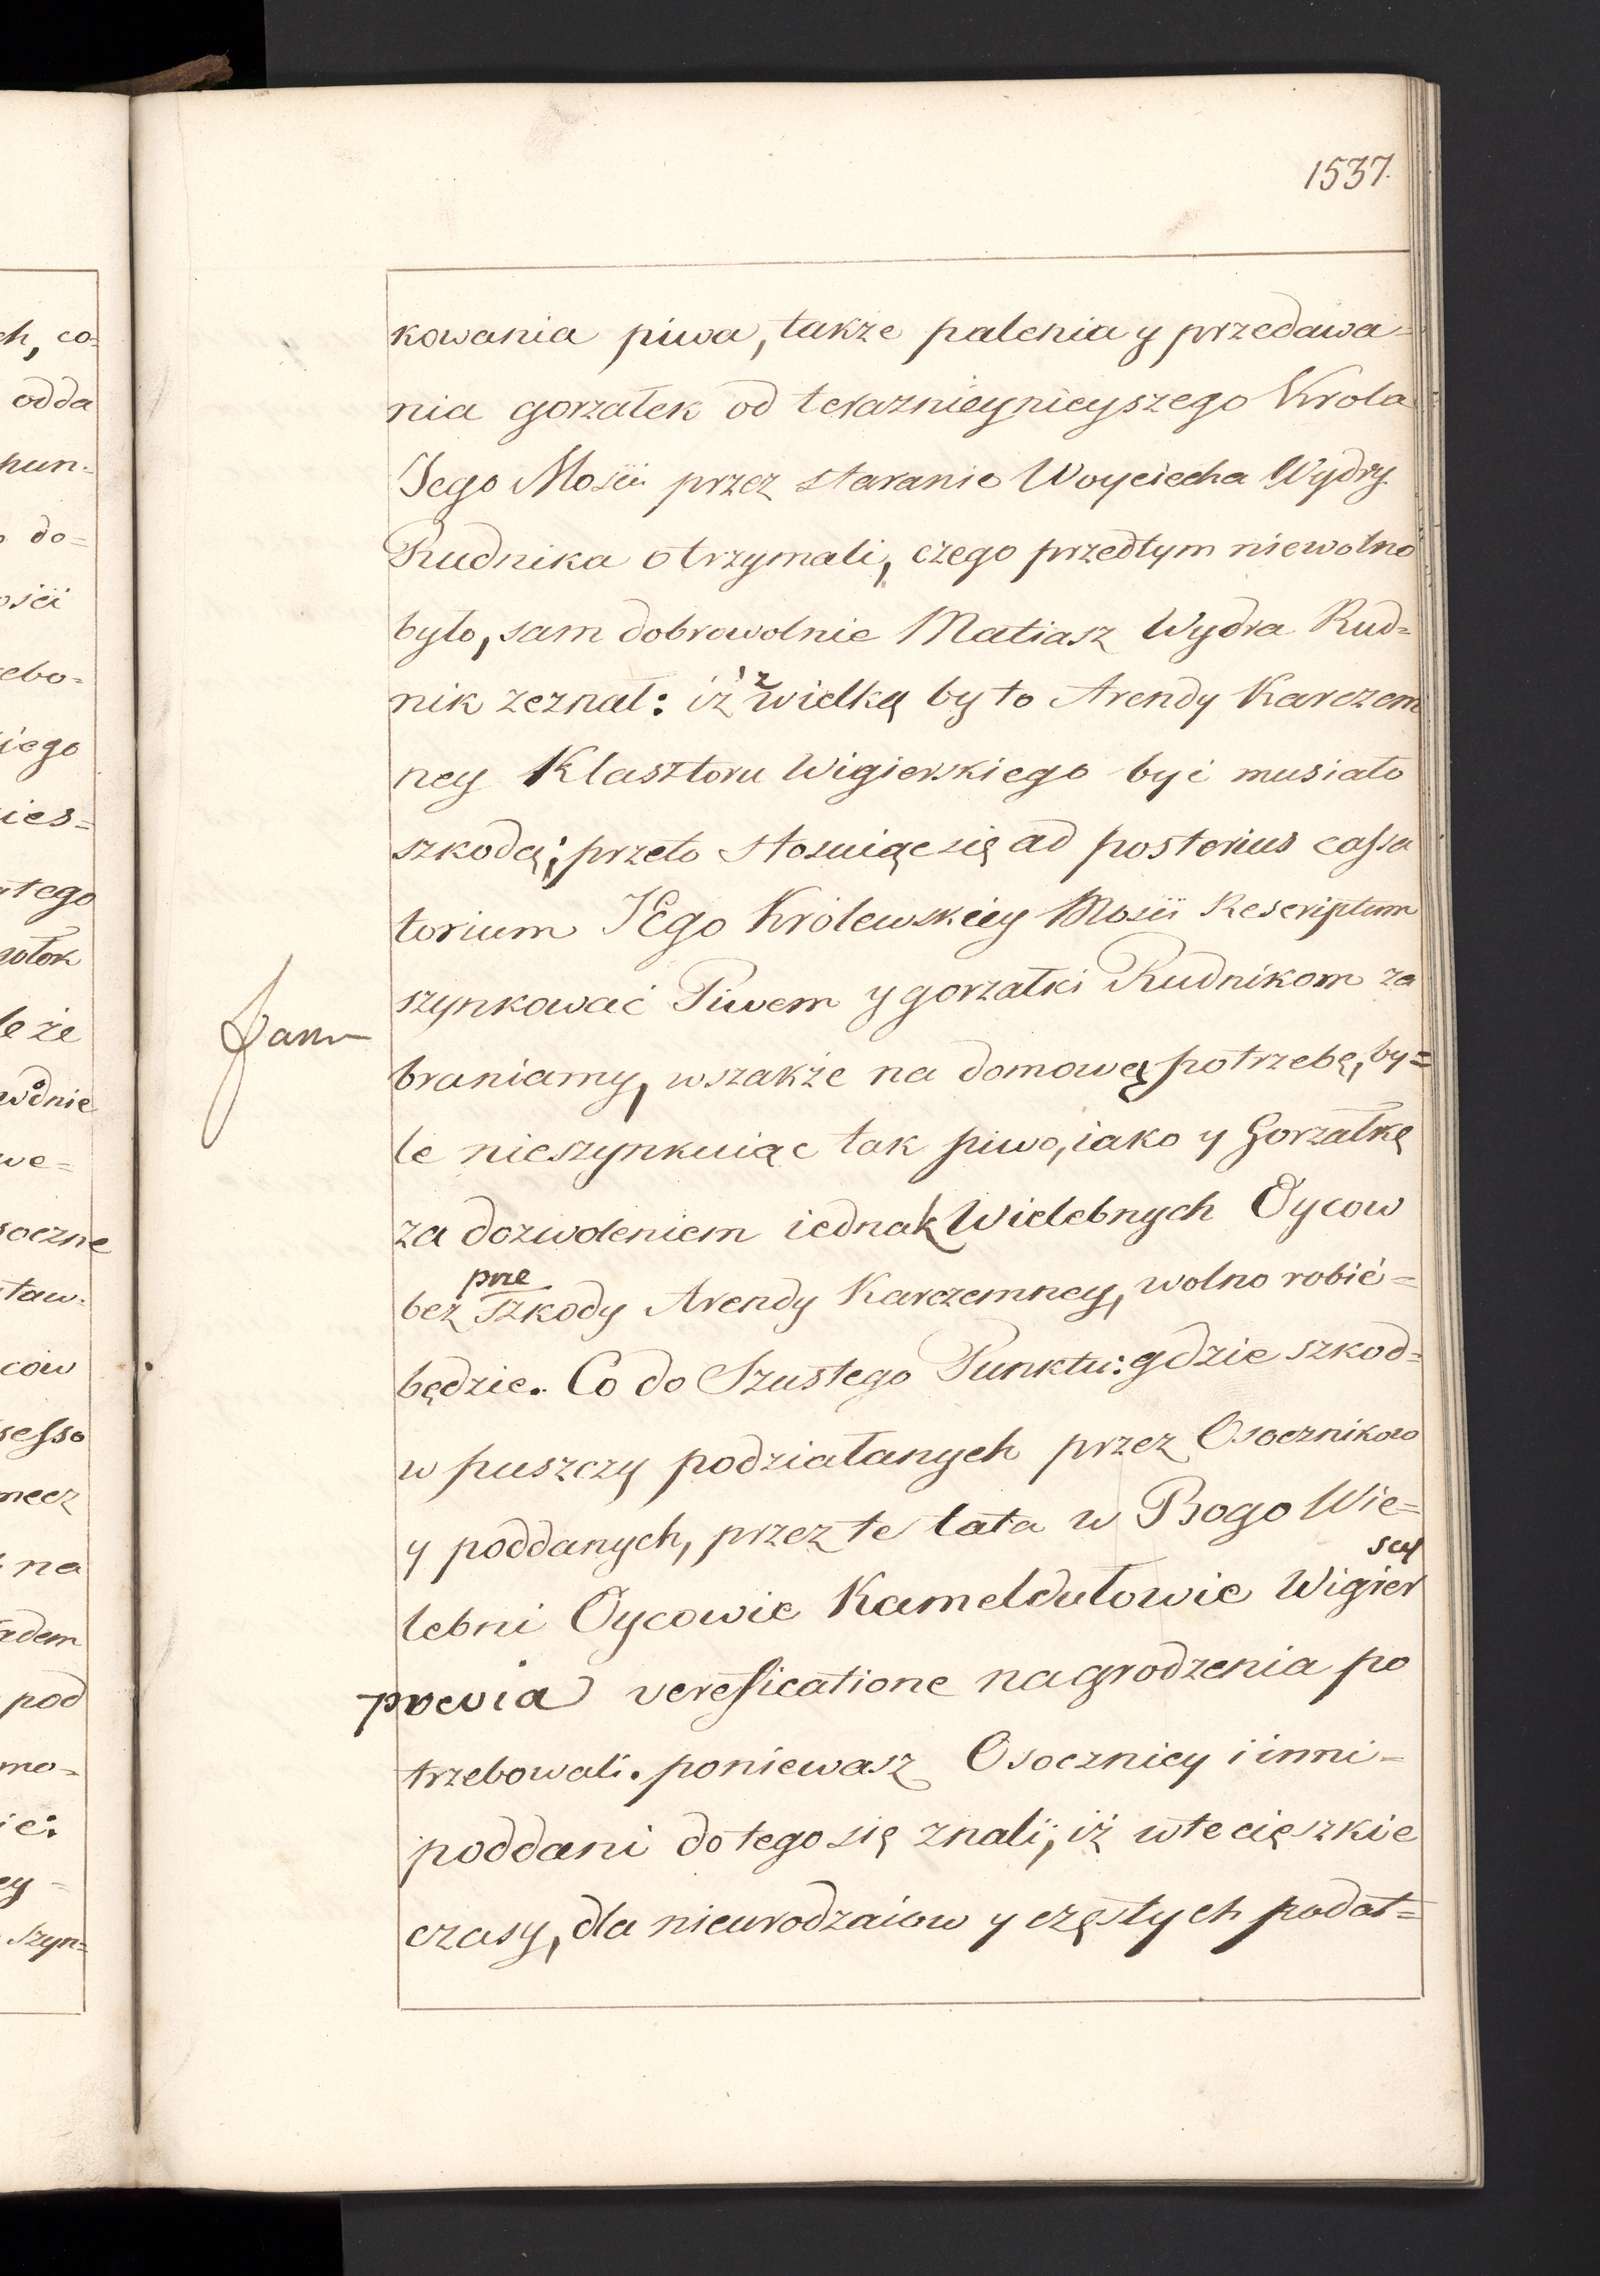 1537.
kowania piwa, takze palenia y przedawa=
nia gorzałek od teraznieynieyszego Krola
Jego Mosci przez staranie Woyciecha Wydry
Rudnika otrzymali, czego przedtym niewolno
było, sam dobrowolnie Matiasz Wydra Rud=
nik zeznał: iż z wielką by to Arendy Karczem
ney Klasztoru Wigierskiego być musiało
szkodą; przeto stosuiąc się ad posterius cassa
torium JEgo Królewskiey Mosci Rescriptum
szynkować Piwem y gorzałki Rudnikom za
braniamy, wszakże na domową potrzebę, by=
le nieszynkuiąc tak piwo, iako y Gorzałkę
za dozwoleniem iednak Wielebnych Oycow
bez prze szkody Arendy Karczemney, wolno robić=
będzie. Co do Szustego Punktu: gdzie szkod=
w puszczy podziałanych przez Osocznikow
y poddanych, przez te lata w Bogo Wie=
lebni Oycowie Kameldułowie Wigier scy
previa verificatione nagrodzenia po
trzebowali. poniewasz Osocznicy i inni=
poddani do tego się znali, iż w te cięszkie
czasy, dla nieurodzaiow y częstych podat=
ch, co=
odda
pun=
do=
ości
zebo=
iego
ies=
atego
le że
we=
oczne
staw=
cow
sesso
na
adem
pod
mo=
ie:
ey=
szyn=